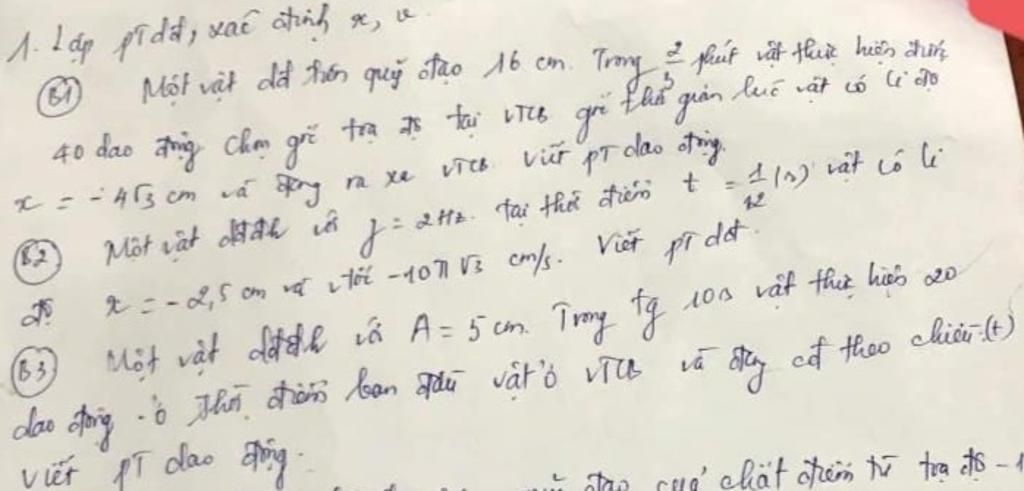 1. Lập PT dđ, xác định x, v.
(B1) Một vật dđ trên quỹ đạo 16 cm. Trong 2/3 phút vật thực hiện đúng
40 dao động Chọn gốc tọa độ tại VTCB gốc thời gian lúc vật có li độ
x = -4√3 cm và đang ra xa VTCB. Viết PT dao động.
(B2) Một vật dđđh với f = 2 Hz. Tại thời điểm t = 1/12 (s) vật có li
độ x = -2,5 cm và v tốc -10π√3 cm/s. Viết PT dđ.
(B3) Một vật dđđh với A = 5 cm. Trong tg 10s vật thực hiện 20
dao động. Ở thời điểm ban đầu vật ở VTCB và đang cđ theo chiều (+)
Viết PT dao động.
đạo của chất điểm từ tọa độ -1